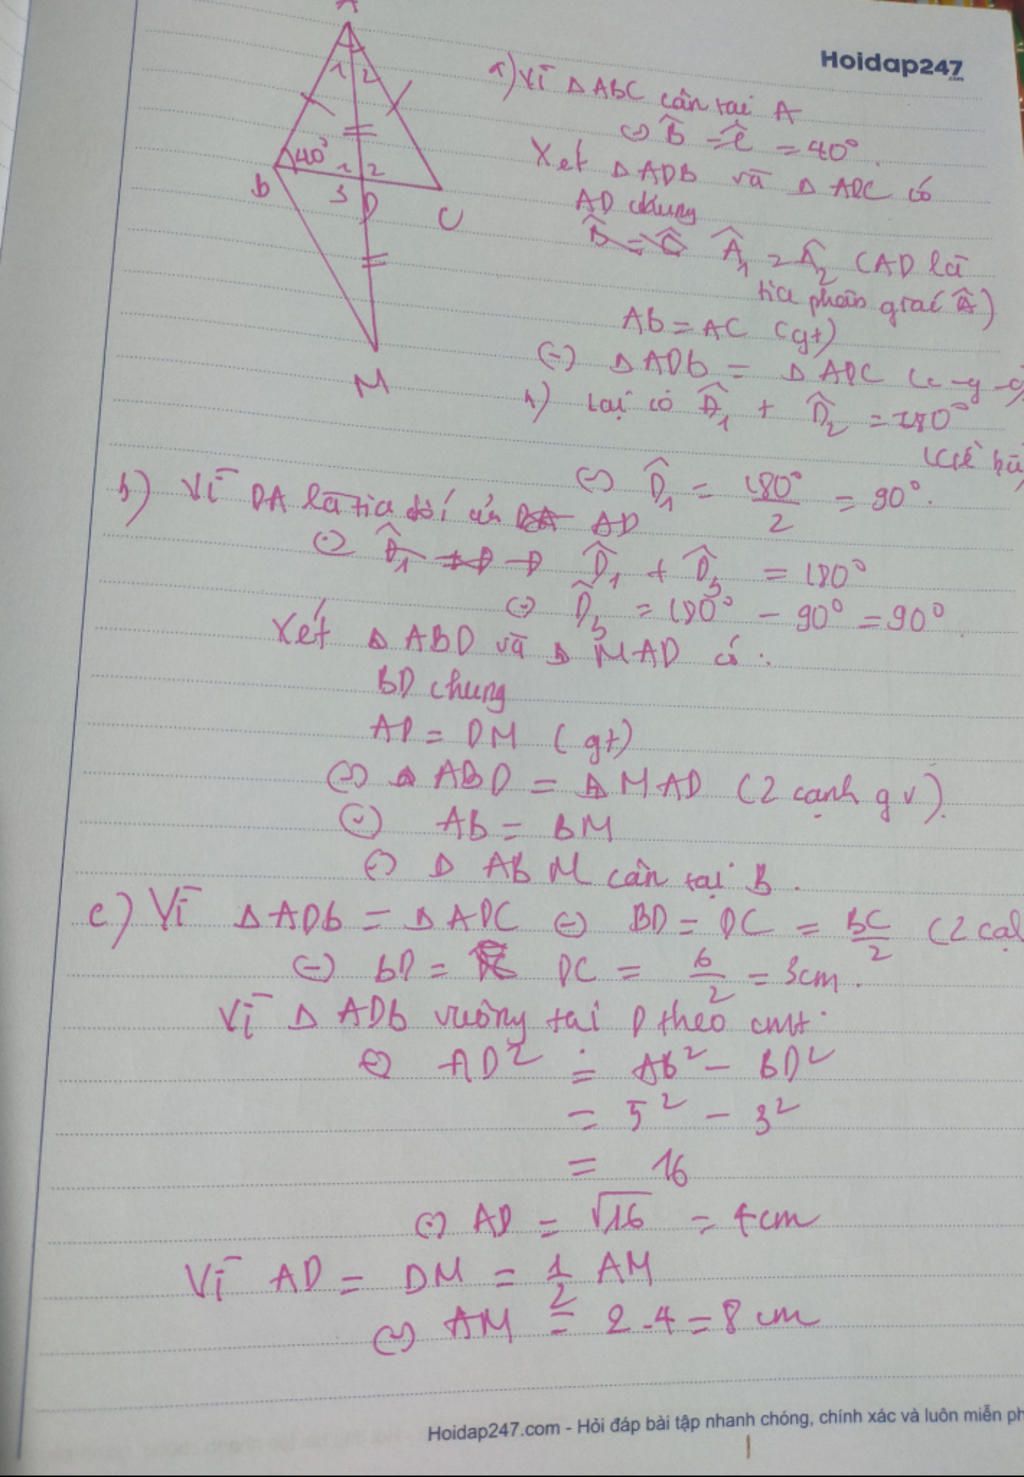 Hoidap247
.com
A
1 2
40°
1 2
B 3 D C
M
a) Vì Δ ABC cân tại A
⇔ B̂ = Ĉ = 40°.
Xét Δ ADB và Δ ADC có
AD chung
B̂ = Ĉ Â₁ = Â₂ (AD là
tia phân giác Â)
AB = AC (gt)
(=) Δ ADB = Δ ADC (c-g-c)
h) Lại có D̂₁ + D̂₂ = 180°
⇔ D̂₁ = 180°/2 = 90°.
b) Vì DA là tia đối của DA AD
⇔ D̂₁ + D̂₃ = 180°
⇔ D̂₃ = 180° - 90° = 90°.
Xét Δ ABD và Δ MAD có:
BD chung
AD = DM (gt)
(=) Δ ABD = Δ MAD (2 cạnh gv).
(=) AB = BM
(=) Δ ABM cân tại B.
c) Vì Δ ADB = Δ ADC (=) BD = DC = BC/2 (2 cạ
(=) BD = DC = 6/2 = 3cm.
Vì Δ ADB vuông tại D theo cmt:
⇔ AD² = AB² - BD²
= 5² - 3²
= 16
(=) AD = √16 = 4cm
Vì AD = DM = 1/2 AM
(=) AM = 2.4 = 8 cm
Hoidap247.com - Hỏi đáp bài tập nhanh chóng, chính xác và luôn miễn ph